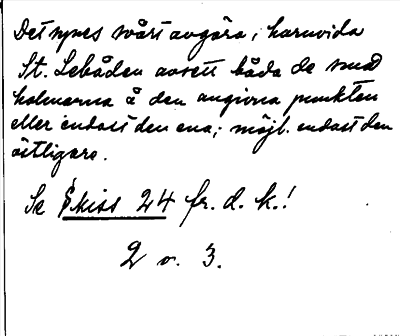 Det synes svårt avgöra, huruvida
St. Lebåden avsett båda de små
holmarna å den angivna punkten
eller endast den ena; möjl. endast den
östligare.
Se Skiss 24 fr. d. k.!
2 o. 3.